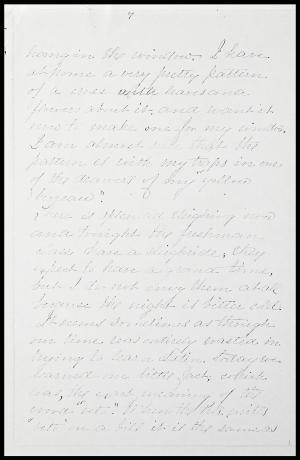 7
hang in the window. I have
at home a very pretty pattern
of a cross with hares and
flowers about it, and want it
now to make one for my window.
I am almost sure that the
pattern is with my traps in one
of the drawers of my yellow
"bureau".
There is splendid sleighing now
and tonight the freshman
class have a sleighride, they
expect to have a grand time,
but I do not envy them at all
because the night is bitter cold.
It seems sometimes as though
our time was entirely wasted in
trying to learn Latin, today we
learned one little fact, which
was, the exact meaning of the
word "vet." When the writes
"veto" on a bill it is the same as